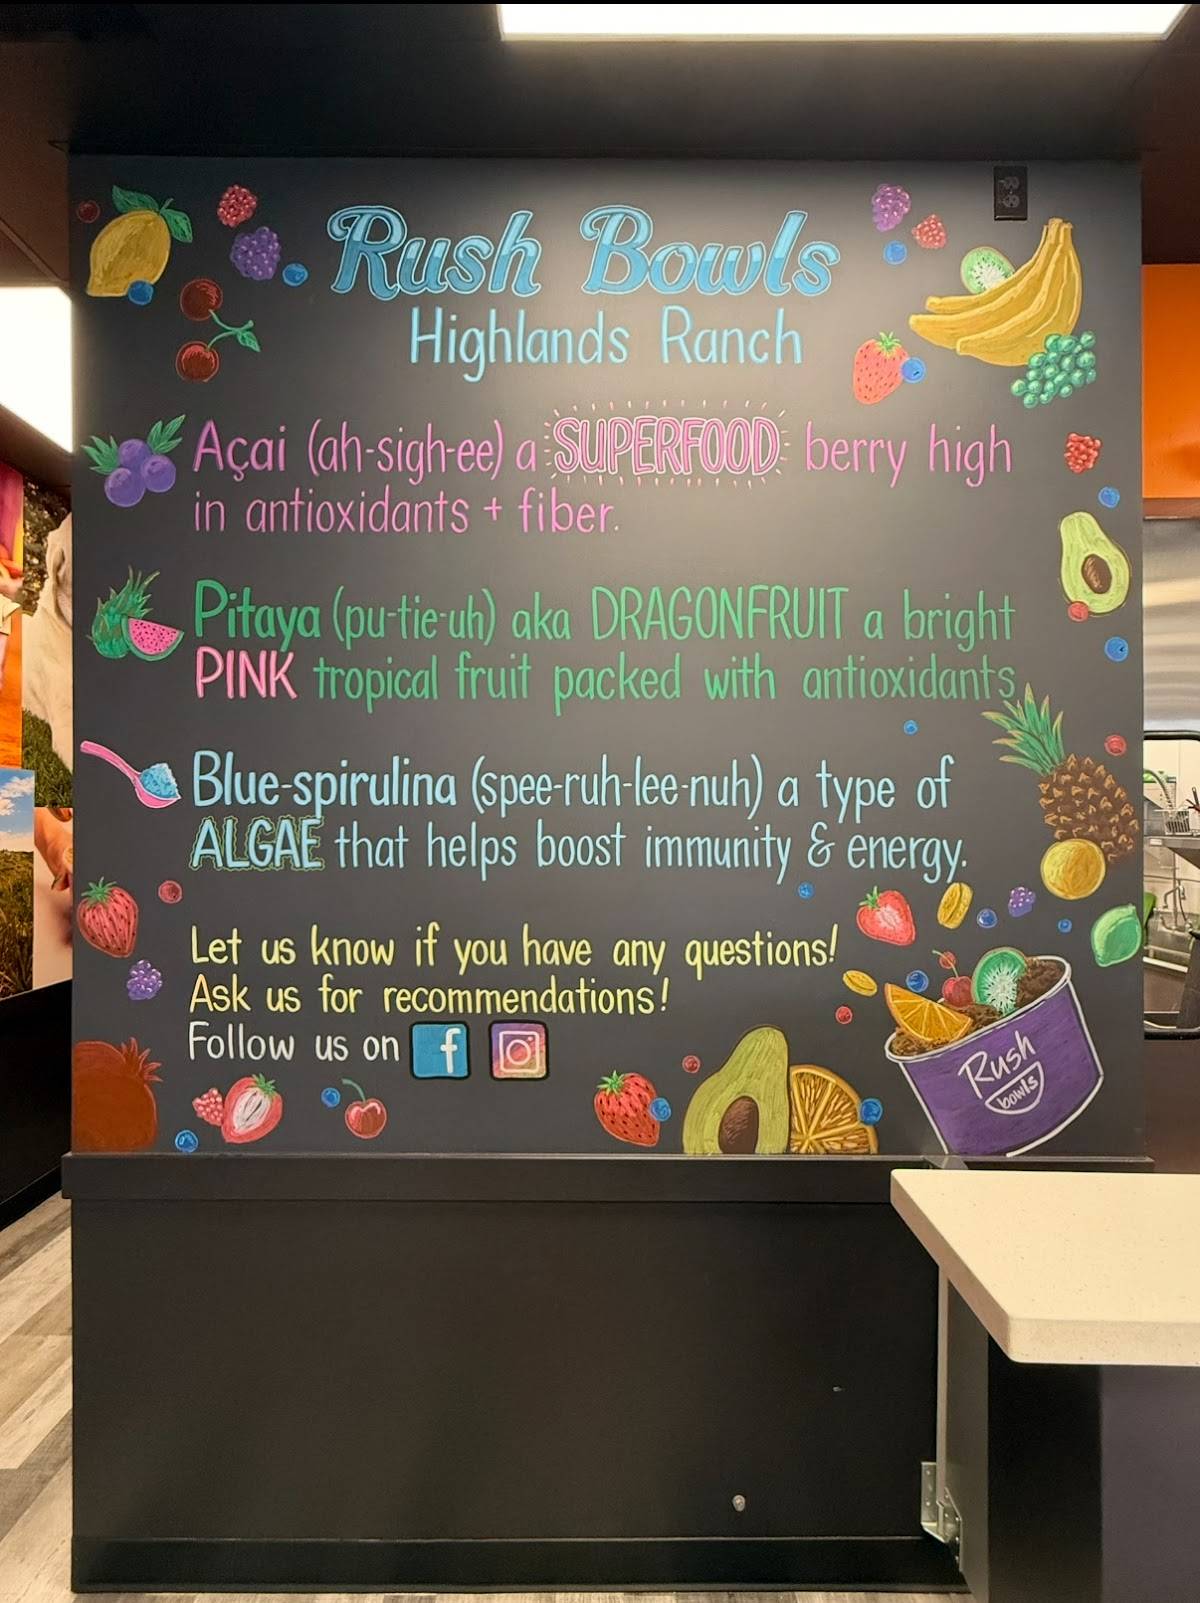 Rush Bowls
Highlands Ranch
Açai (ah-sigh-ee) a SUPERFOOD berry high
in antioxidants + fiber.
Pitaya (pu-tie-uh) aka DRAGONFRUIT a bright
PINK tropical fruit packed with antioxidants.
Blue-spirulina (spee-ruh-lee-nuh) a type of
ALGAE that helps boost immunity & energy.
Let us know if you have any questions!
Ask us for recommendations!
Follow us on f
Rush
bowls